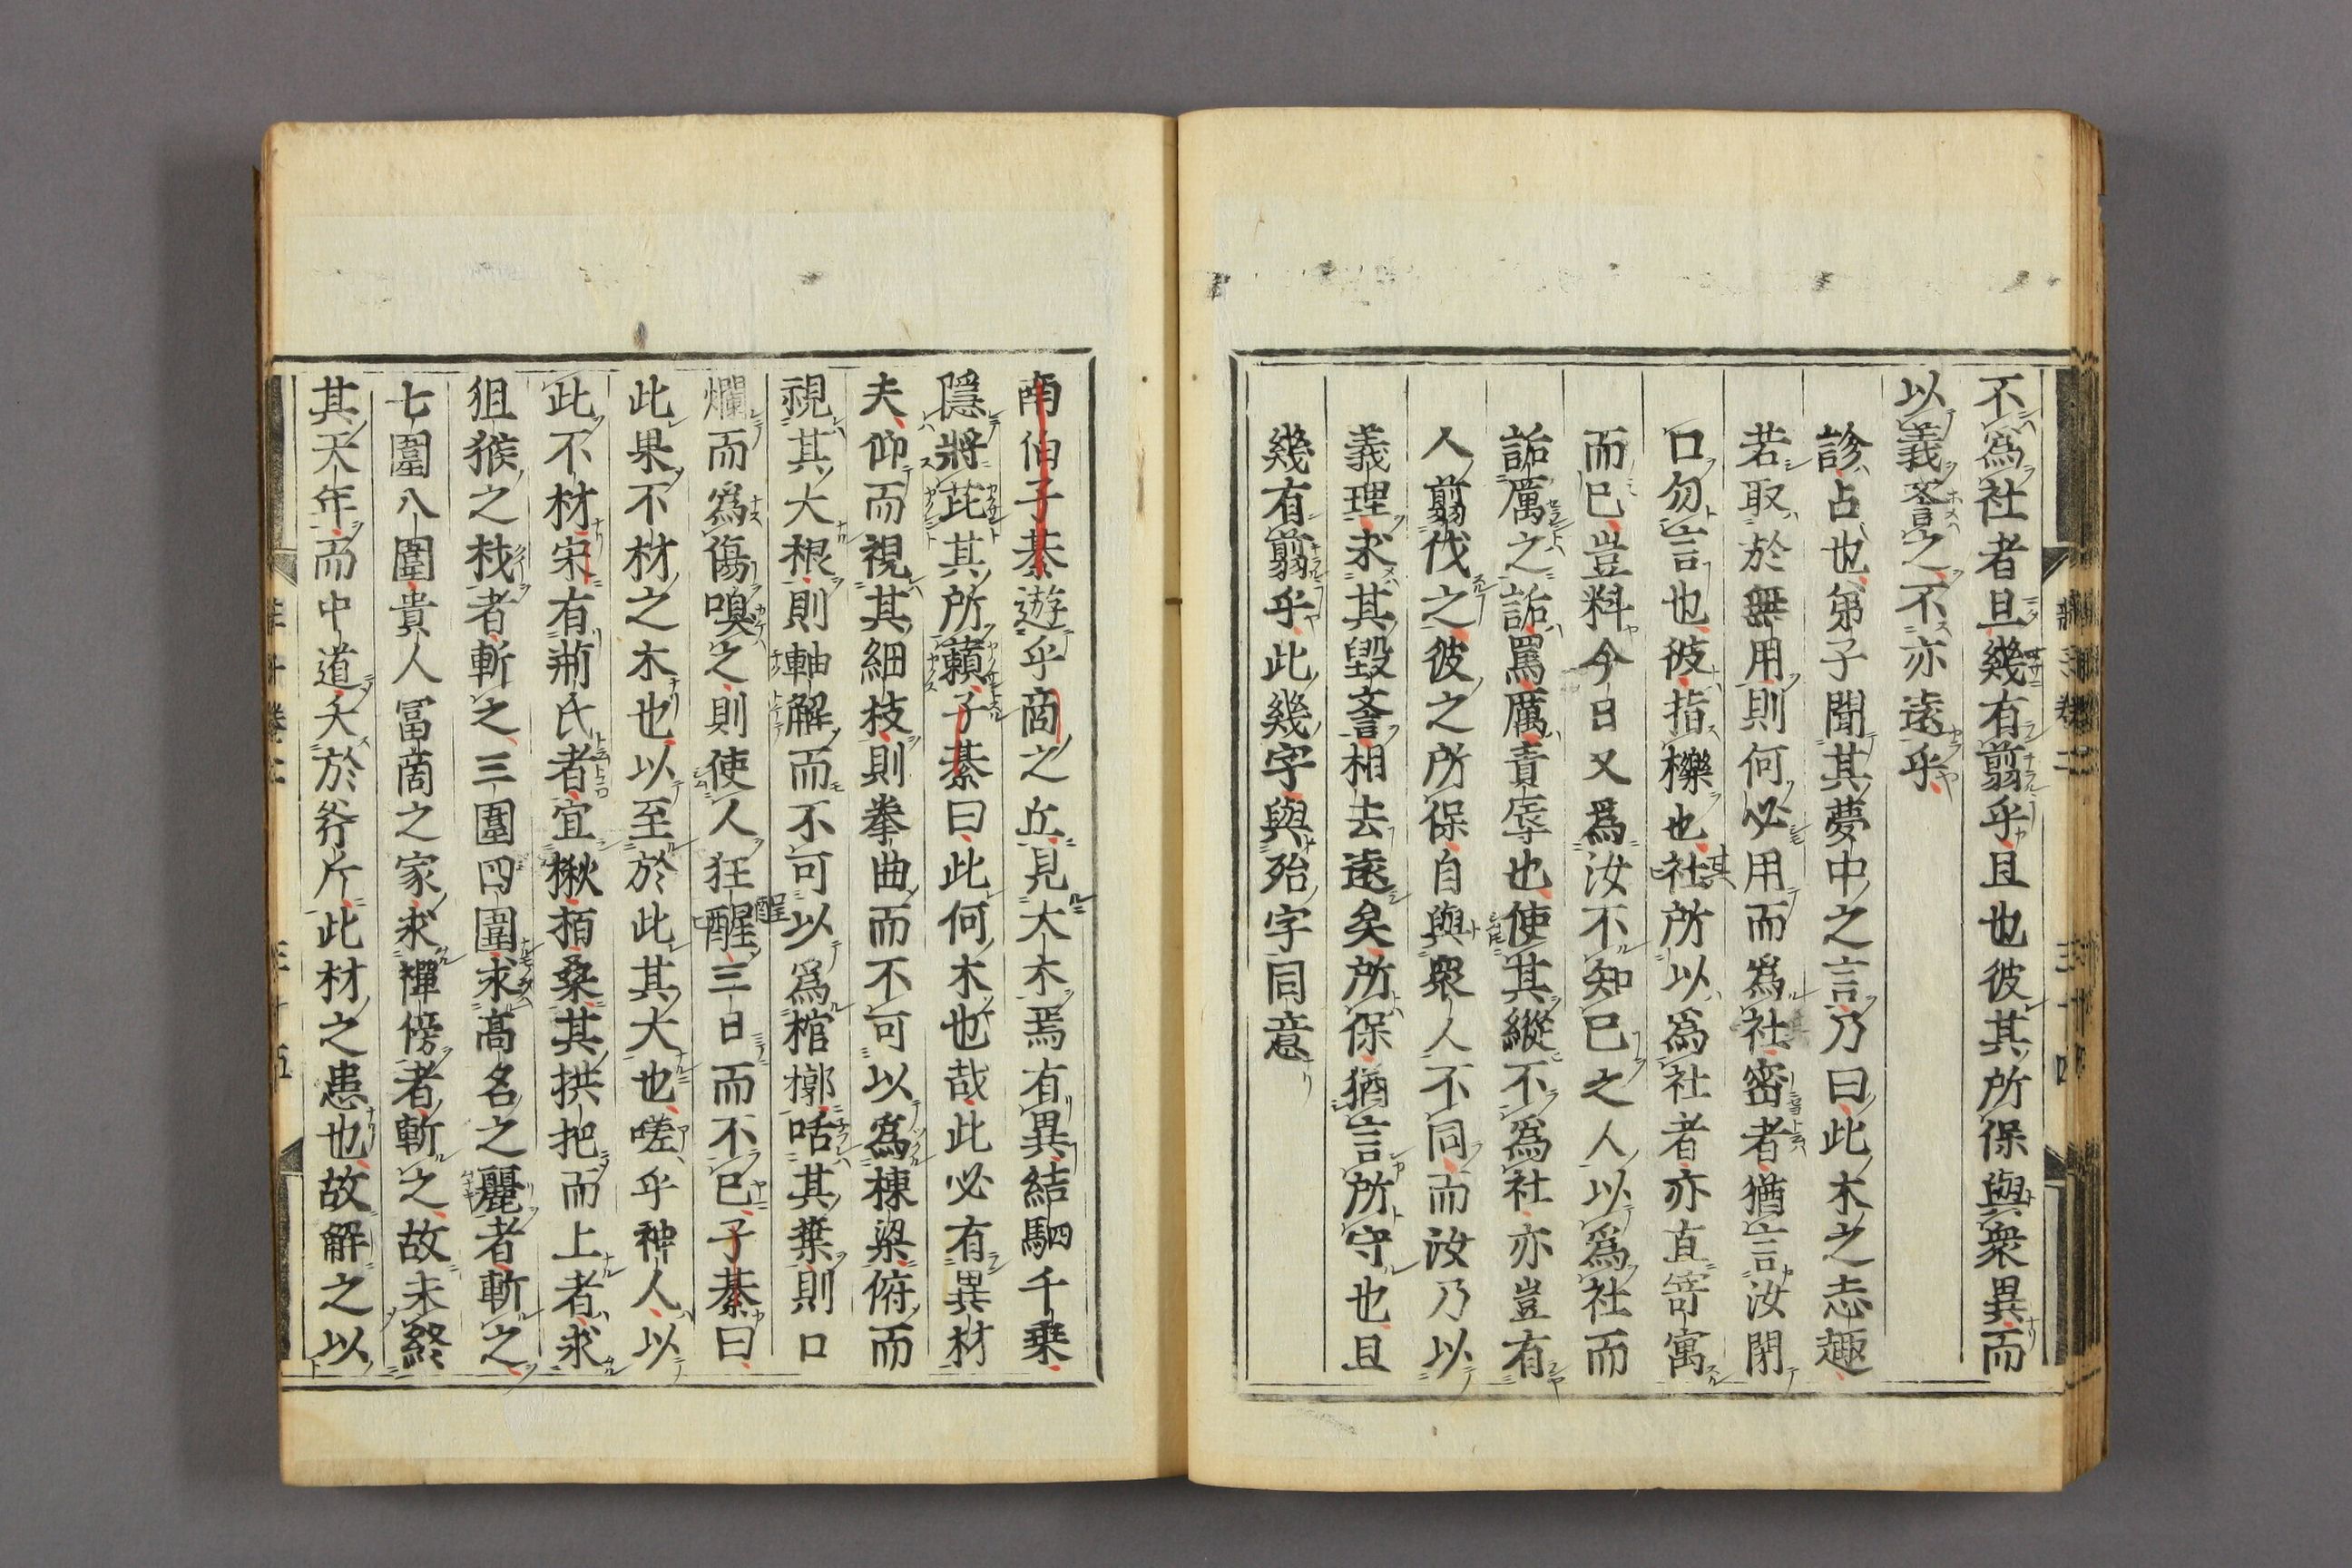 不爲社者且幾有翦乎且也彼其所保與衆異而
以義譽之不亦遠乎
診占也弟子聞其夢中之言乃曰此木之志趣
若取於無用則何必用而爲社密者猶言汝閉
口勿言也彼指櫟也社所以爲社者亦直寄寓
而已豈料今日又爲汝不知已之人以爲社而
詬厲之詬罵厲責辱也使其縱不爲社亦豈有
人翦伐之彼之所保自與衆人不同而汝乃以
義理求其毀譽相去遠矣所保猶言所守也且
幾有翦乎此幾字與殆字同意
南伯子綦遊乎商之丘見大木焉有異結駟千乗
隱將芘其所藾子綦曰此何木也哉此必有異材
夫仰而視其細枝則拳曲而不可以爲棟梁俯而
視其大根則軸解而不可以爲棺槨咶其葉則口
爛而爲傷嗅之則使人狂酲三日而不已子綦曰
此果不材之木也以至於此其大也嗟乎神人以
此不材宋有荊氏者宜楸栢桑其拱把而上者求
狙猴之杙者斬之三圍四圍求高名之麗者斬之
七圍八圍貴人冨商之家求樿傍者斬之故未終
其天年而中道夭於斧斤此材之患也故解之以